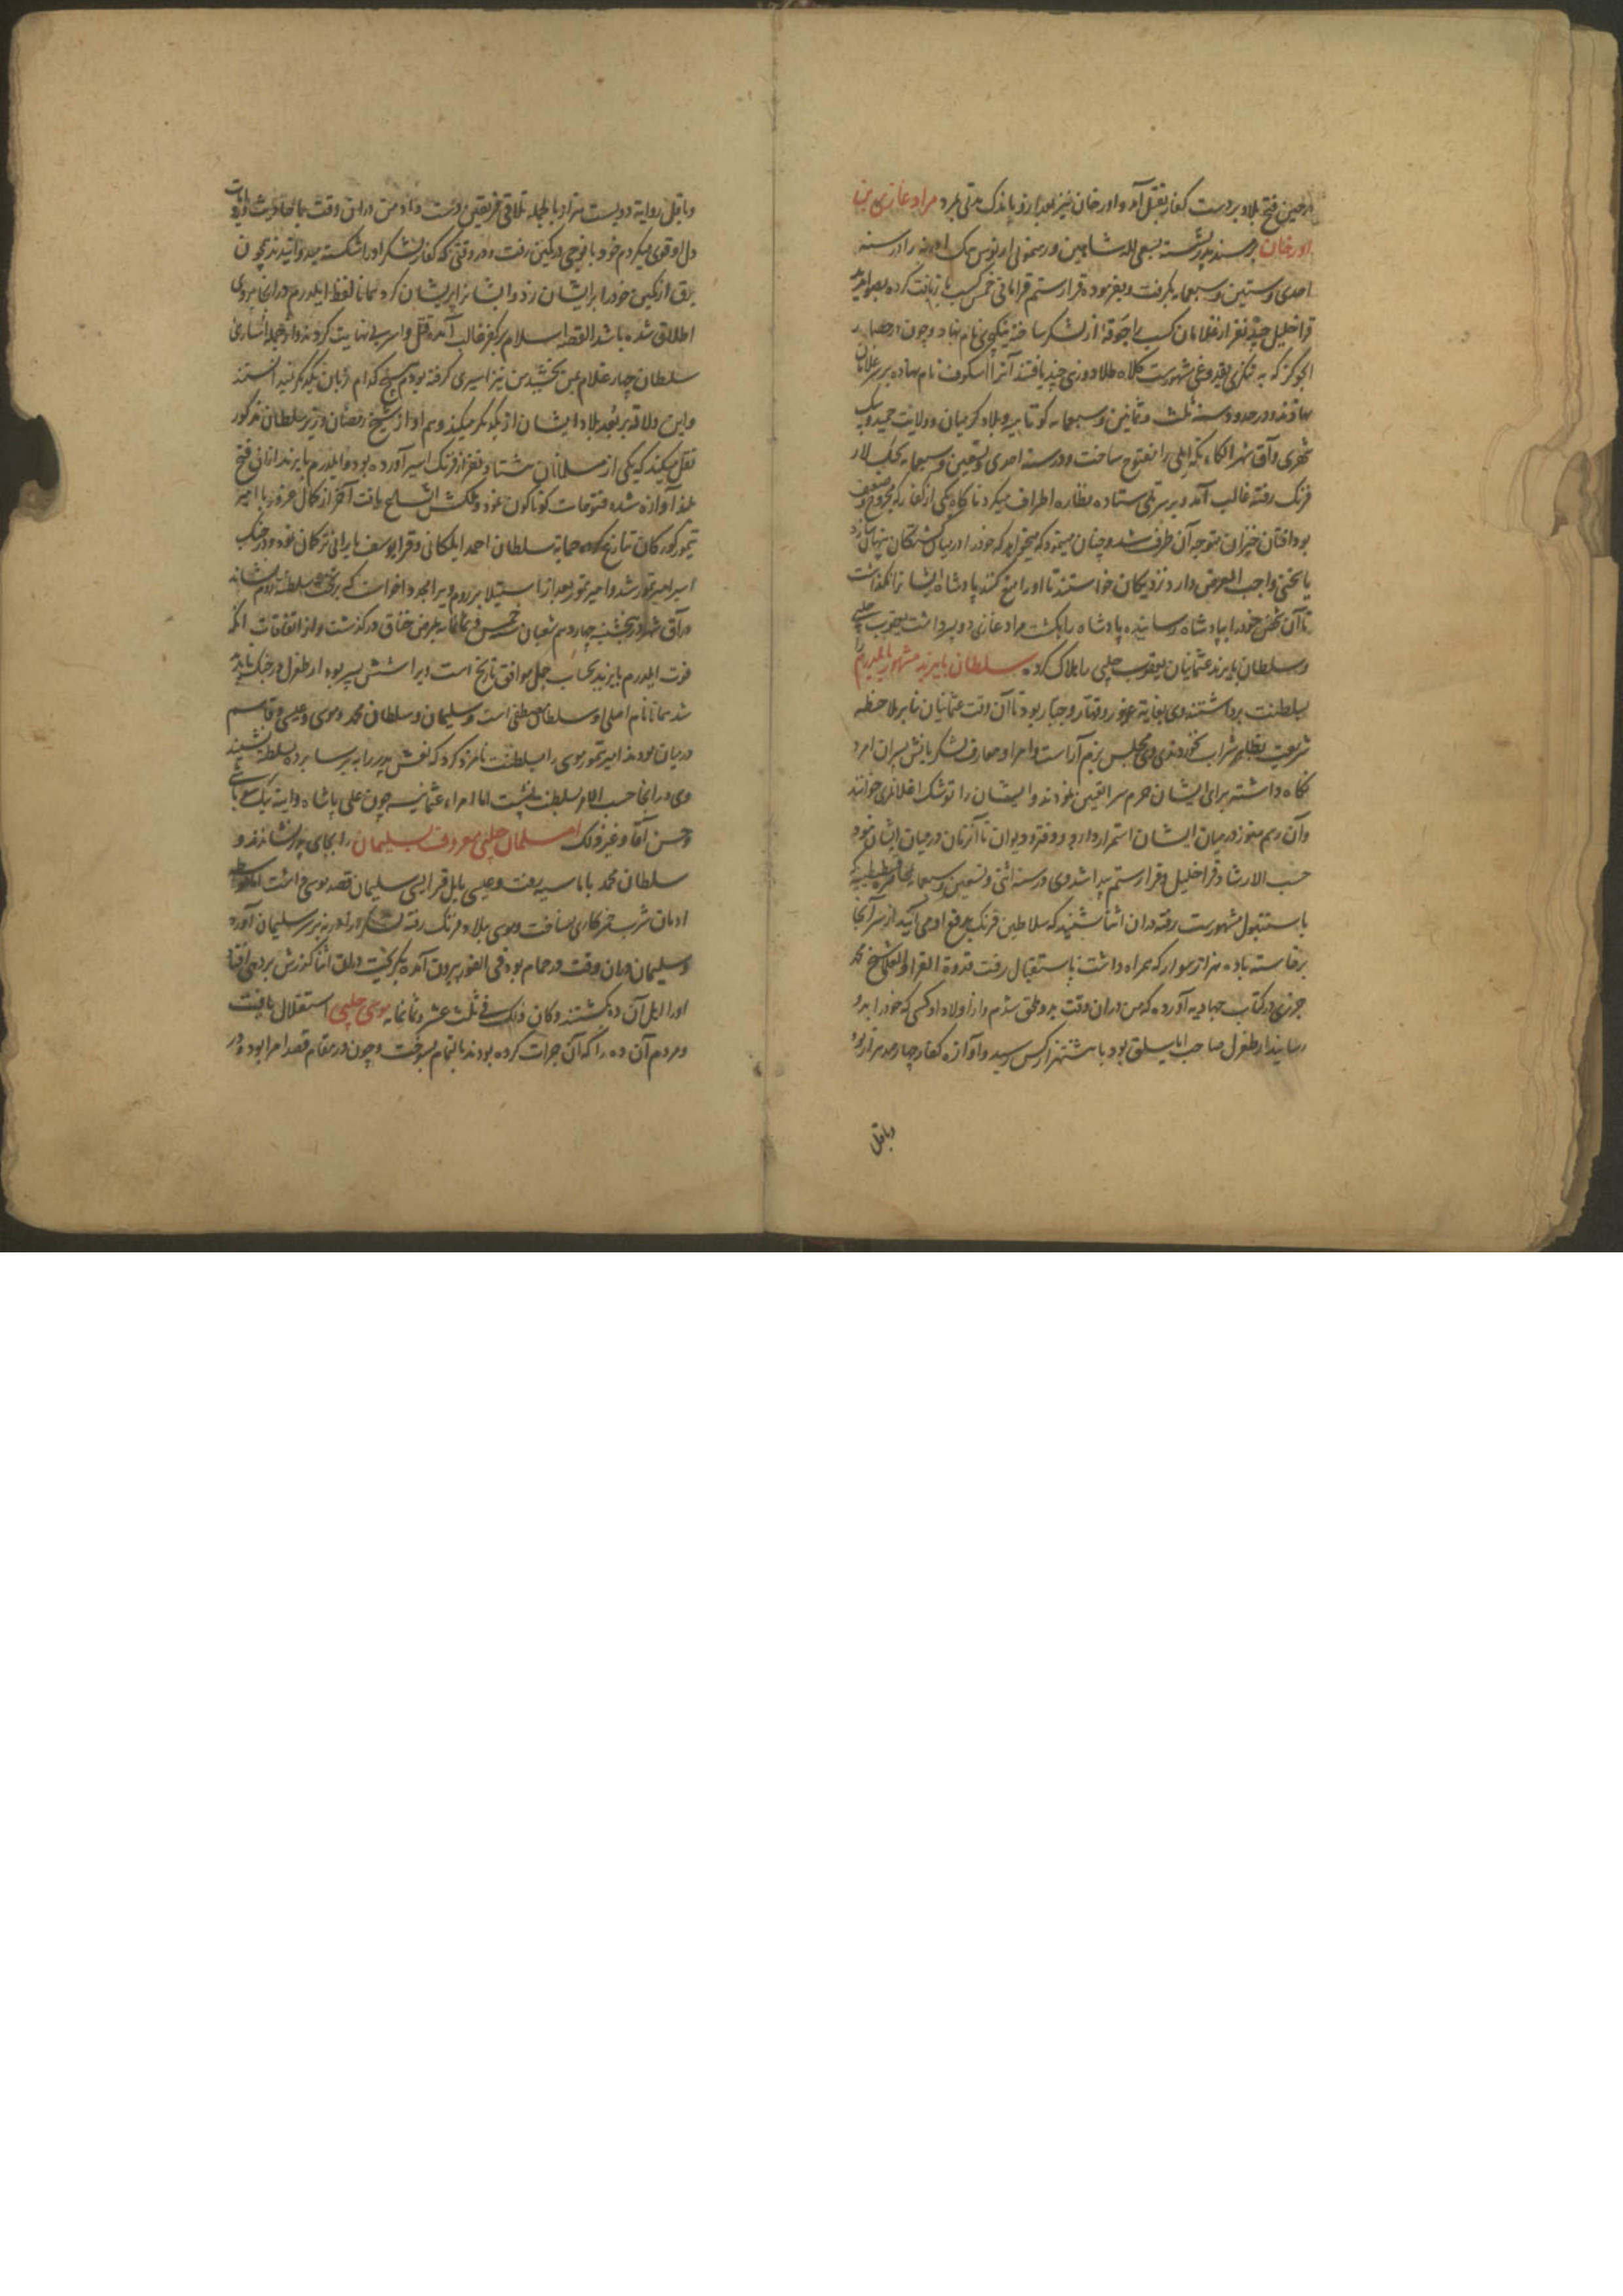 در حین فتح بلاد بر دست کفار بقتل آمد و اورخان نیز بعد ازو باندک مدتی بمرد مراد غازی بن
اورخان بر مسند پدر نشسته بسعی لله شاهین و رهنمونی اورنوس بیک ادرنه را در سنه
احدی و ستین و سبعمایه بگرفت و بفرموده قرا رستم قرامانی خمس کسب بازیافت کرده بصوابدید
قرا خلیل چند نفر از غلامان کسب را جوقهٔ از لشکر ساخته ینکچری نام نهاد و چون در حصار
انجوکز که به تنکری یقدوغی شهورست کلاه طلادوزی چند یافتند آنرا اسکوف نام نهاده بر سر غلامان
نهادند و در حدود سنه ثلث و ثمانین و سبعمایه کوتاهیه و بلاد کرمیان و ولایت حمید و بیک
شهری و آق شهر را مفتوح ساخت و در سنه احدی و تسعین و سبعمایه بجنک لار
فرنک رفته غالب آمد و بر سر تلی ستاده نظاره اطراف میکرد ناکاه یکی از کفار که مجروح و ضعیف
بود افتان خیزان متوجه آن طرف شد و چنان مینمود که میخواهد که خود را در میان کشتکان پنهان سازد
یا سخنی واجب العرض دارد نزدیکان خواستند تا او را منع کنند پادشاه ایشانرا نکذاشت
تا آن شخص خود را بپادشاه رسانیده پادشاه را بکشت مراد غازی دو پسر داشت یعقوب چلبی
و سلطان بایزید عثمانیان یعقوب چلبی را هلاک کرده سلطان بایزید مشهور بایلدرم را
بسلطنت برداشتند وی بغایة غیور و قهار و جبار بود تا آن وقت عثمانیان بنابر ملاحظه
شریعت بظاهر شراب نخوردندی وی مجلس بزم آراست و امرا و معارف لشکریانش پسران امرد
نکاه داشته برای ایشان حرم سرا تعیین نمودند و ایشان را توشک اغلانلری خوانند
و آن رسم هنوز در میان ایشان استمرار دارد و دفتر و دیوان تا آنزمان در میان ایشان نبود
حسب الارشاد قرا خلیل و قرا رستم پیدا شد وی در سنه اثنی و تسعین و سبعمایه بمحاصره قسطنطنیه که
باستنبول مشهورست رفته در آن اثنا شنید که سلاطین فرنک بدفع او می آیند از سر آنجا
برخاسته با ده هزار سوار که همراه داشت باستقبال رفت قدوة القراء و العلما شیخ محمد
جزری در کتاب جهادیه آورده که من در آن وقت بدو ملحق شدم و از اولاد او کسی که خود را بدو
رسانید ارطغرل صاحب ایاسلق بود با هشتهزار کس رسید و آوازه کفار چهار صد هزار بود
و باقل
و باقل روایة دویست هزار بالجمله تلاقی فریقین دست داد و من در آن وقت بمجاورت
دل او قوی میکردم خود با فوجی در کمین رفت و در وقتی که کفار لشکر او را شکسته میدوانیدند چون
برق از کمین خود را بر ایشان زد و ایشانرا پریشان کرد همانا لفظ ایلدرم در آنجا بر وی
اطلاق شده باشد القصه اسلام بر کفر غالب آمده قتل و اسر بی نهایت کردند و از جمله اساری
سلطان چهار غلام بمن بخشید من نیز اسیری کرفته بودم هیچ کدام زبان یکدیکر نمیدانستند
و این دلالة بر بعد بلاد ایشان از یکدیکر میکند و هم او از شیخ رمضان وزیر سلطان مذکور
نقل میکند که یکی از مسلمانان هشتاد نفر از فرنک اسیر آورده بود و ایلدرم بایزید اتانی فتح
بلند آوازه شده فتوحات کوناکون نمود و ملکش اتساع یافت آخر از کمال غرور با امیر
تیمور کورکان تنازع کرده حمایة سلطان احمد ایلکانی و قرا یوسف بارانی ترکان نموده در جنک
اسیر امیر تیمور شد و امیر تیمور بعد از استیلا بر روم ویرا مجدد اخواست که بر تخت سلطنة روم نشاند
در آق شهر در پنجشنبه چهاردهم شعبان سنه خمس و ثمانمایه بمرض خناق درکذشت و از اتفاقات آنکه
فوت ایلدرم بایزید بحساب جمل موافق تاریخ است ویرا شش پسر بود ارطغرل در جنک ناپدید
شد همانا نام اصلی او سلطان مصطفی است و سلیمان و سلطان محمد و موسی و عیسی و قاسم
در میان بودند امیر تیمور موسی را بسلطنت نامزد کرد که نعش پدر را به برسا برده بسلطنة نشیند
وی در آنجا حسب الامر بسلطنت نشست اما امراء عثمانیه چون علی پاشا و اینه بیک
و حسن آقا و غیر ذلک امسلمان چلبی معروف بسلیمان را بجای پدر نشاندند و
سلطان محمد باماسیه رفت و عیسی بابل قرا ایسی سلیمان قصد موسی داشت
ادمان شرب خرکاری نساخت و موسی ببلاد فرنک رفته لشکر از ادرنه بر سر سلیمان آورد
و سلیمان در آن وقت در حمام بود فی الفور بیرون آمده بکریخت در آن اثنا کذرش بردهی افتاد
او را اهل آن ده بکشتند و کان ذلک فی ثلث عشر و ثمانمایه موسی چلبی استقلال یافت
و مردم آن ده را که آن جرات کرده بودند بالتمام بسوخت و چون در مقام قصد امرا بود